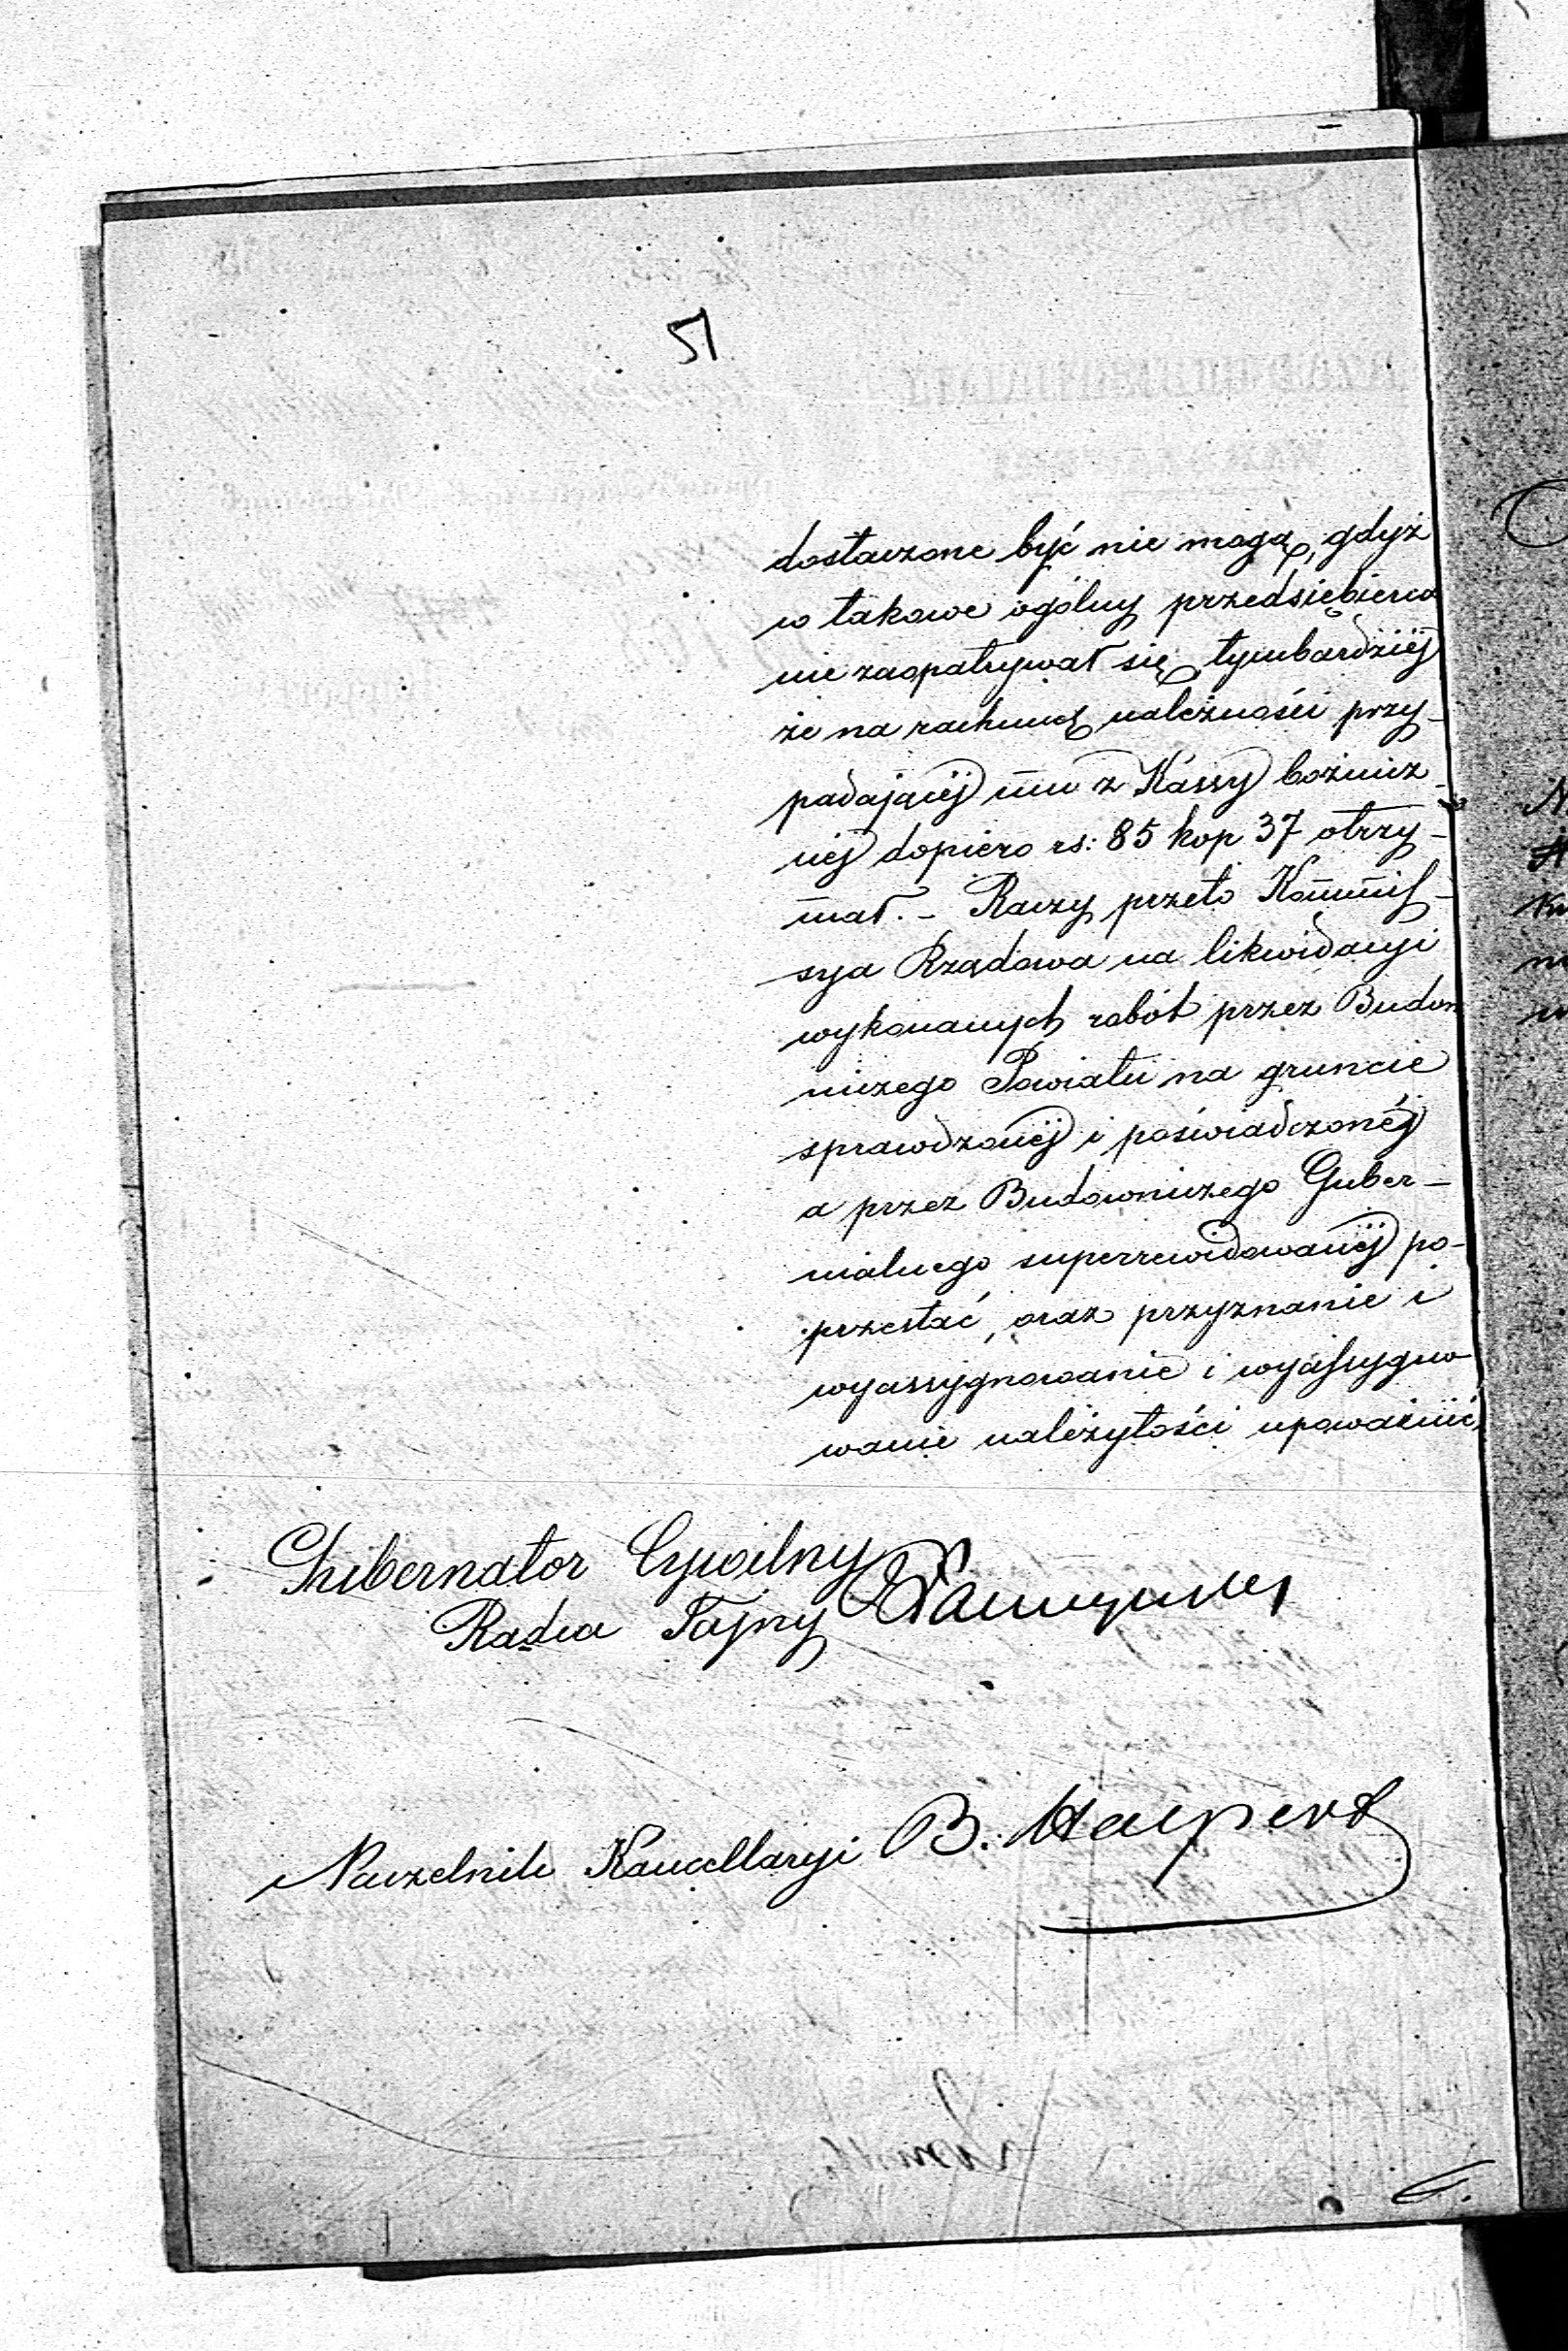 51
dostarczone być nie mogą, gdyż
w takowe ogólny przedsiębierca
nie zaopatrywał się, tymbardziéj
że na rachunek należności przy-
padającéj mu z Kassy bóżnicz-
néj dopiero rs: 85 kop 37 otrzy-
mał. - Raczy przeto Kommis-
sya Rządowa na likwidacyi
wykonanych robót przez Budow
niczego Powiatu na gruncie
sprawdzonéj i poświadczonéj
a przez Budowniczego Guber-
nialnego superrewidowanéj po-
przestać, oraz przyznanie i
wyassygnowanie i wyassygno
wanie należytości upoważnić,
Gubernator Cywilny
Radca Tajny
Naczelnik Kancellaryi B. Halpert